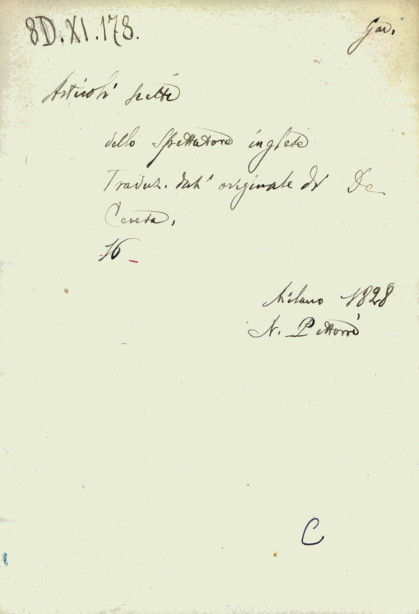 8D.XI.178.
Gar.
Articoli scelti
dello Spettatore inglese
Traduz. dall' originale di De
Ceseta.
16
Milano 1828
N. Bettoni
C